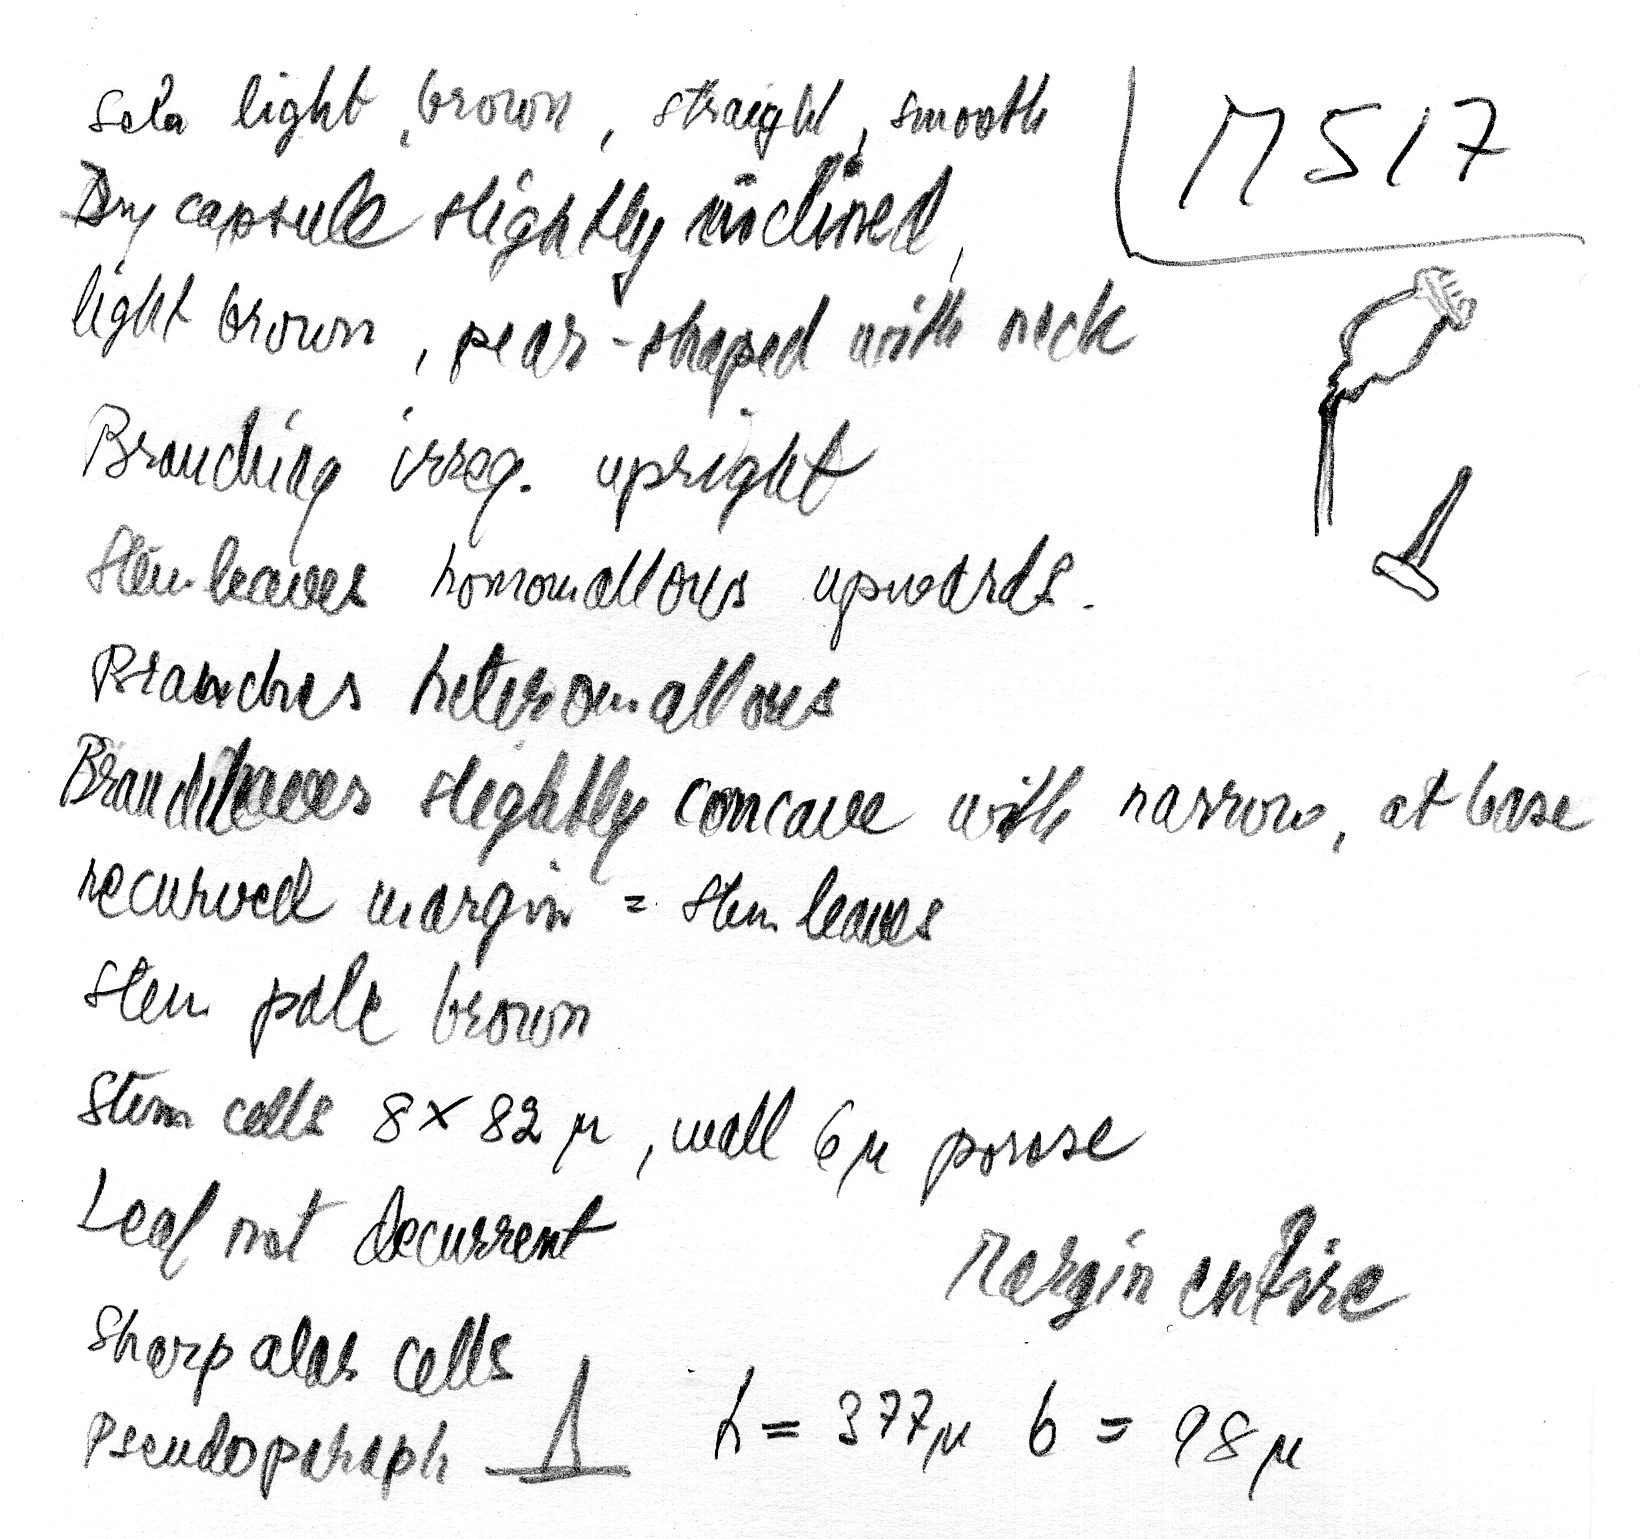 Seta light brown, straight, smooth
M517
Dry capsule slightly inclined,
light brown, pear-shaped with neck
Branching irreg. upright
Stemleaves homomallous upwards.
Branches heteromallous
Branchleaves slightly concave with narrow, at base
recurved margin = stem leaves
Stem pale brown
Stem cells 8 × 82 µ, wall 6 µ porose
Leaf not decurrent
Margin entire
Sharp alar cells
Pseudoparaph h = 377 µ b = 98 µ